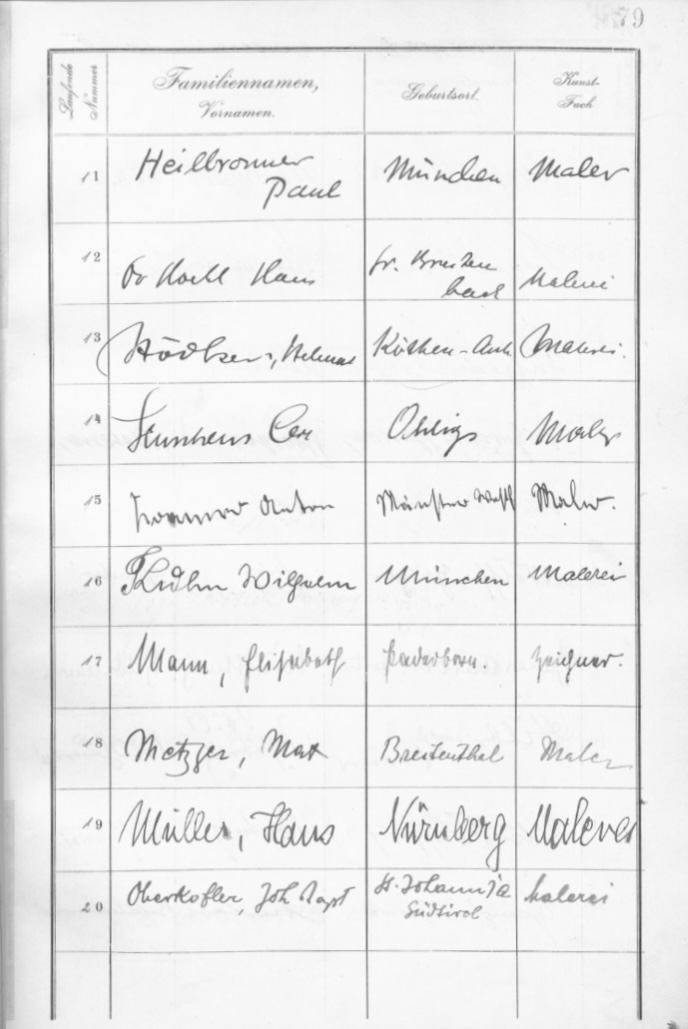 79
Laufende Nummer
Familiennamen, Vornamen.
Geburtsort.
Kunst-Fach
11 Heilbronner Paul München Maler
12 Dr Hans Gr. Breitenbach Malerei
13 Köthen-Anh. Malerei.
14 Ohligs Maler
15 Anton Münster Westf Maler.
16 Kuhn Wilhelm München Malerei
17 Mann, Elisabeth Paderborn. Zeichner.
18 Metzger, Max Breitenthal Maler
19 Müller, Hans Nürnberg Malerei
20 Oberkofler, Joh Bapt St. Johann i/A Südtirol Malerei